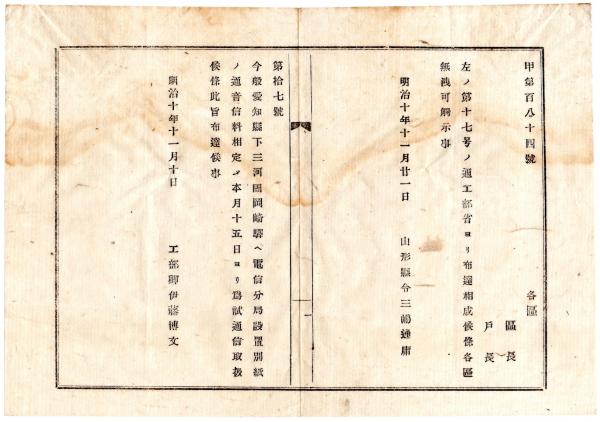 甲第百八十四號
各區
區長
戸長
左ノ第十七号ノ通工部省ヨリ布達相成候條各區
無洩可觸示事
明治十年十一月廿一日
山形縣令三島通庸
一
第拾七號
今般愛知縣下三河國岡崎驛ヘ電信分局設置別紙
ノ通音信料相定メ本月十五日ヨリ爲試通信取扱
候條此旨布達候事
明治十年十一月十日
工部卿伊藤博文